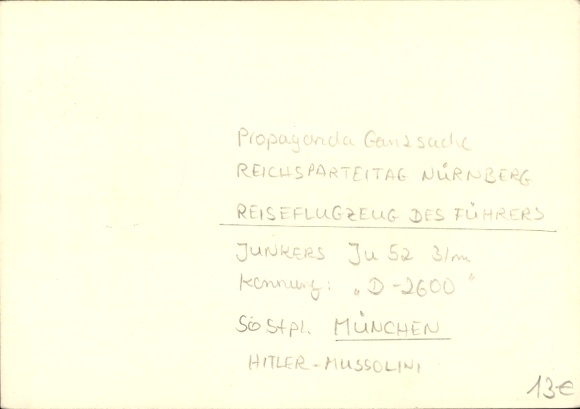 Propaganda Ganzsache
REICHSPARTEITAG NÜRNBERG
REISEFLUGZEUG DES FÜHRERS
JUNKERS Ju 52 3/m
Kennung: „D-2600"
SoStpl. MÜNCHEN
HITLER-MUSSOLINI
13€